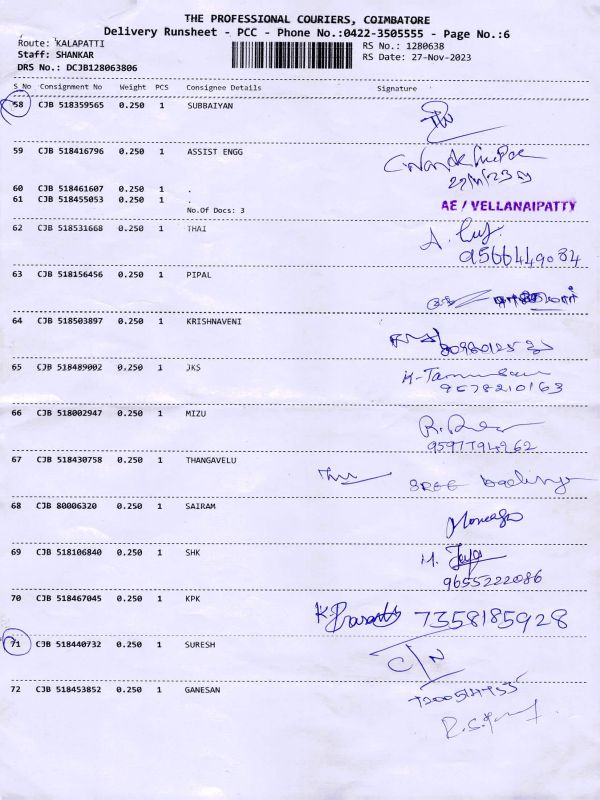 THE PROFESSIONAL COURIERS, COIMBATORE
Delivery Runsheet - PCC - Phone No.:0422-3505555 - Page No.:6
Route: KALAPATTI RS No.: 1280638
Staff: SHANKAR RS Date: 27-Nov-2023
DRS No.: DCJB128063806
S No Consignment No Weight PCS Consignee Details Signature
58 CJB 518359565 0.250 1 SUBBAIYAN
59 CJB 518416796 0.250 1 ASSIST ENGG
60 CJB 518461607 0.250 1 .
61 CJB 518455053 0.250 1 .
AE / VELLANAIPATTY
No.Of Docs: 3
62 CJB 518531668 0.250 1 THAI
9566449084
63 CJB 518156456 0.250 1 PIPAL
64 CJB 518503897 0.250 1 KRISHNAVENI
65 CJB 518489002 0.250 1 JKS
9578210163
66 CJB 518002947 0.250 1 MIZU
9597794962
67 CJB 518430758 0.250 1 THANGAVELU
SREE
68 CJB 80006320 0.250 1 SAIRAM
69 CJB 518106840 0.250 1 SHK
9655222086
70 CJB 518467045 0.250 1 KPK
7358185928
71 CJB 518440732 0.250 1 SURESH
72 CJB 518453852 0.250 1 GANESAN